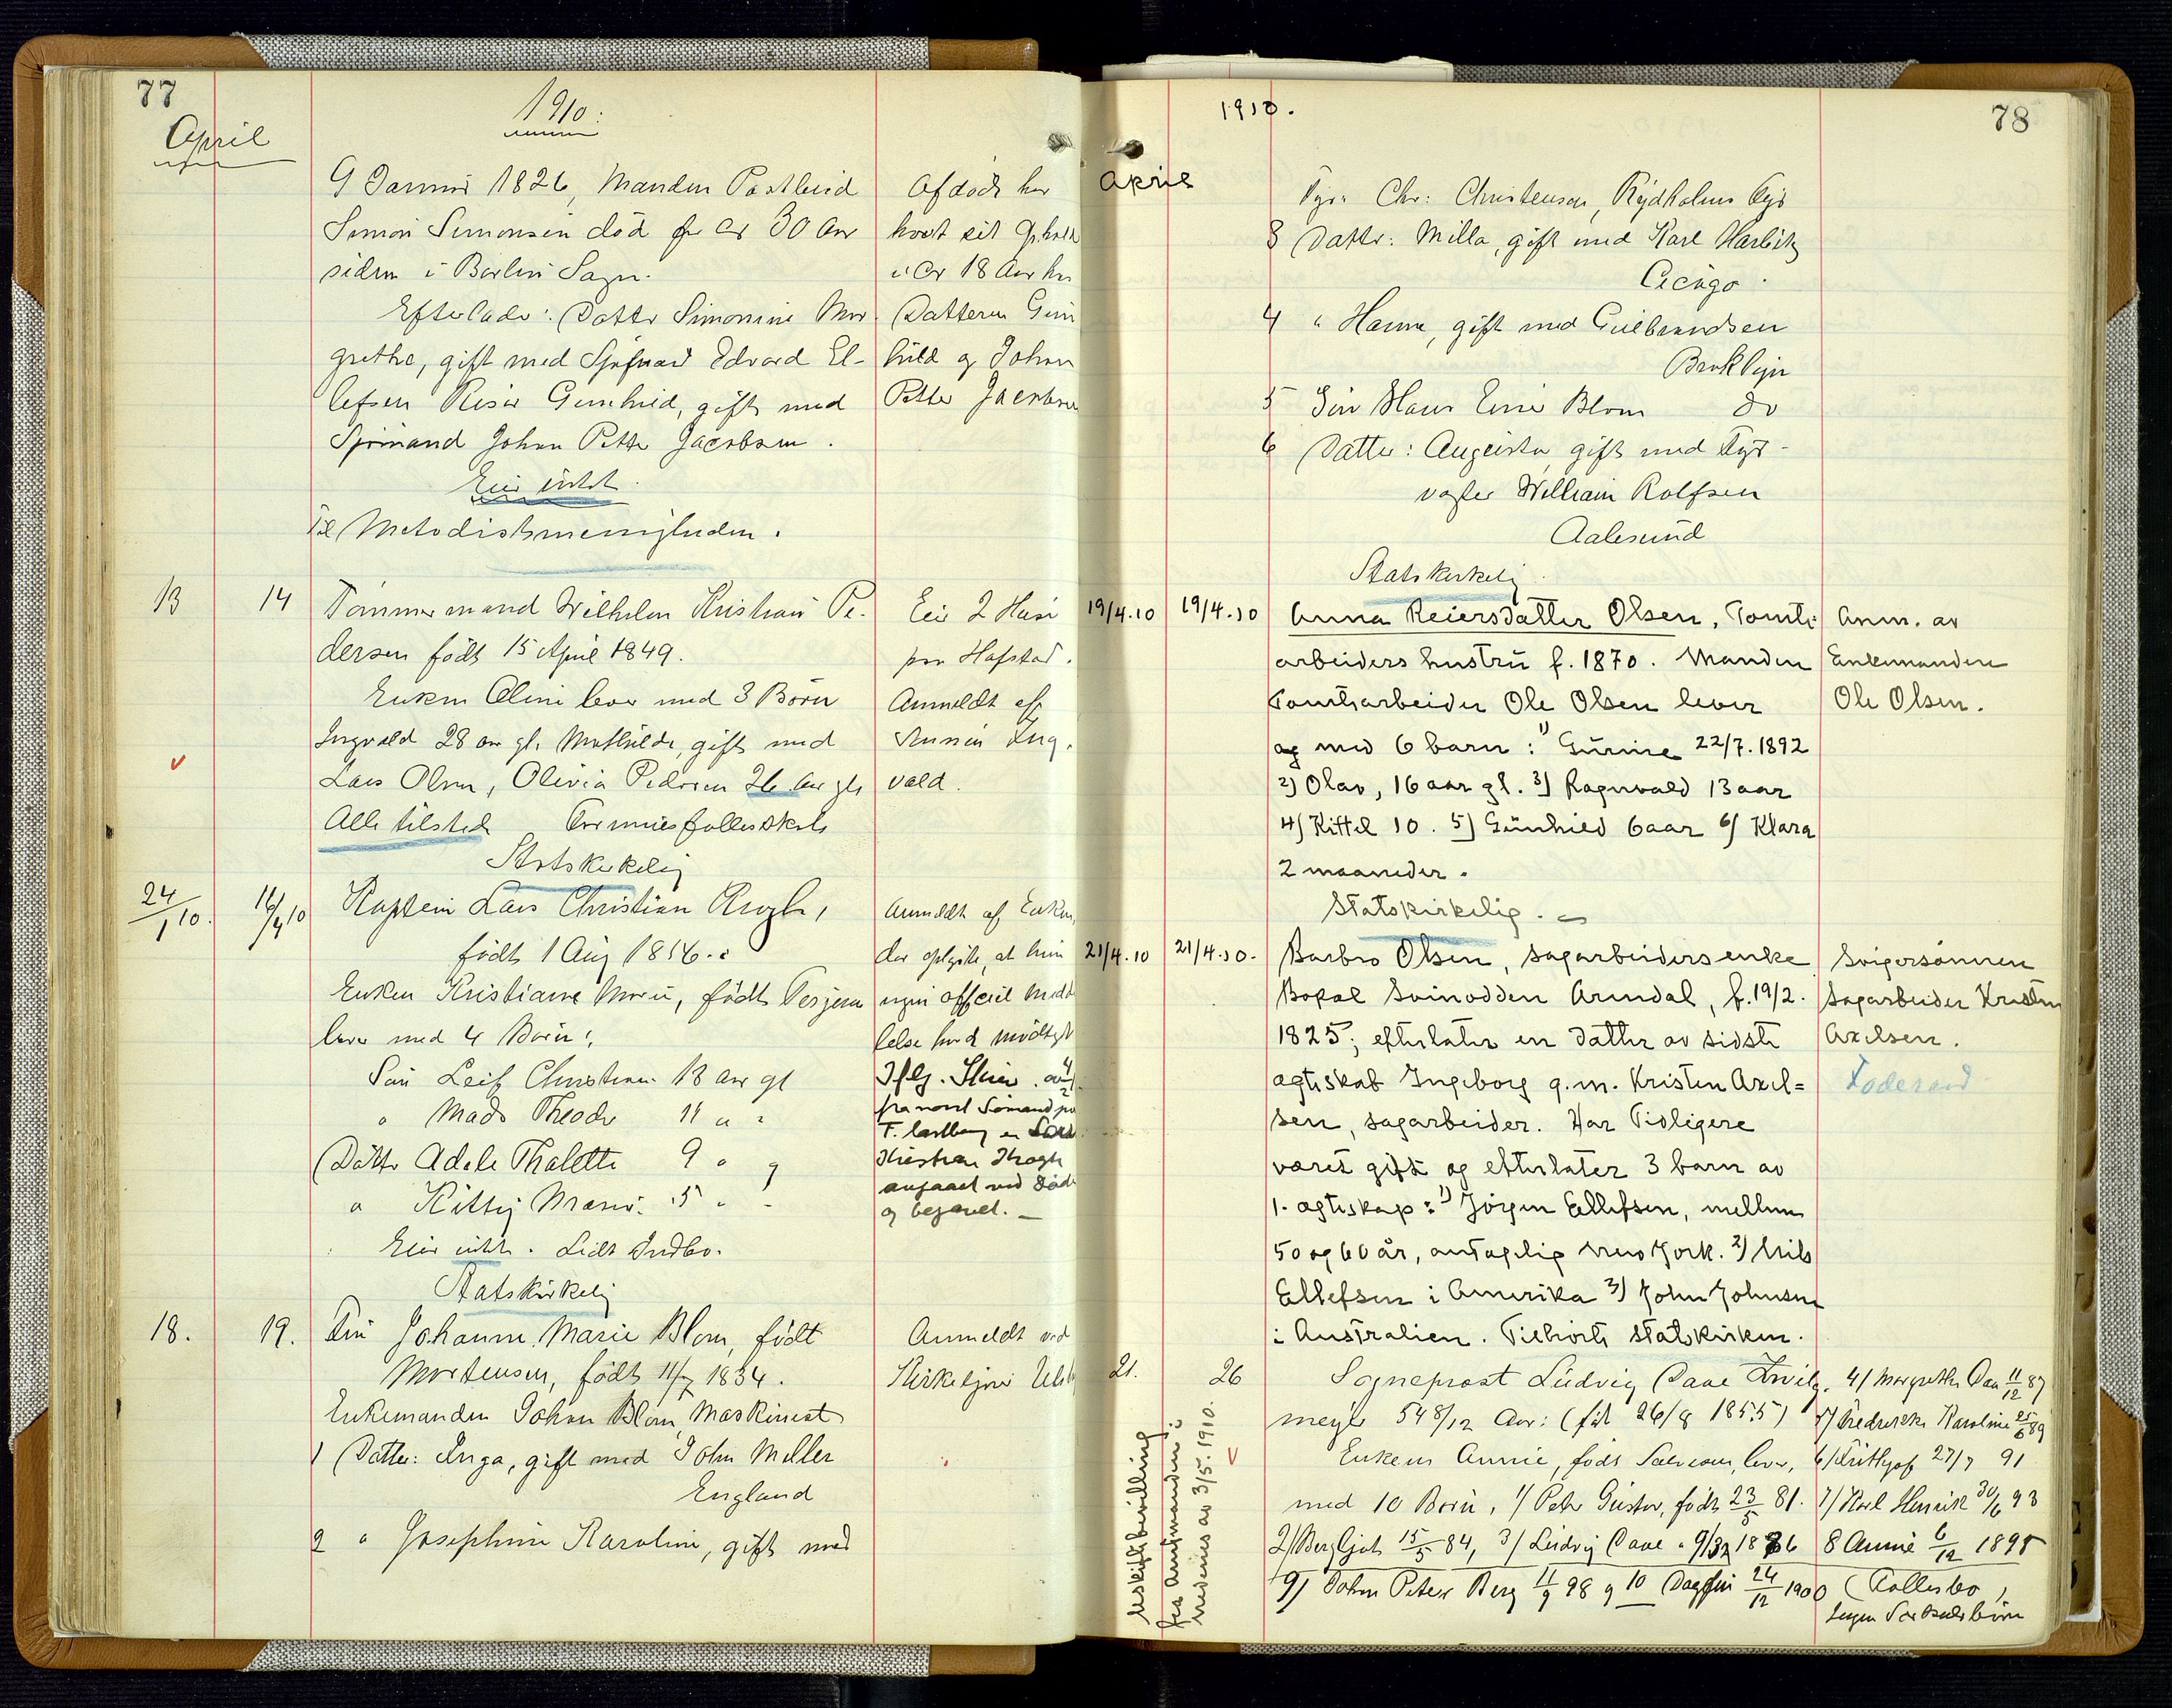 77
1910.
April
9 Januar 1826, Manden
Simon Simonsen död for ca 30 Aar
siden i Sogn.
Efterlader: Datter Simonine Mar-
grethe, gift med Edvard El-
lefsen Risør Gunhild, gift med
Sjømand Johan Petter Jacobsen.
Eier intet.
Til Metodistmenigheden.
Afdøde har
havt sit Ophold
i Ca 18 Aar hos
Datteren Gun
hild og Johan
Petter Jacobsen
13 14 Tømmermand Wilhelm Kristian Pe-
dersen født 15 April 1849.
Enken Oline lever med 3 Børn
Ingvald 28 aar gl. Mathilde, gift med
Lars Olsen, Olivia Pedersen 26 Aar gl.
Alle tilstede
Statskirkelig
Eier 2 Huse
paa Hafstad.
Anmeldt af
Sønnen Ing-
vald.
24/1 10. 16/4 10 Kaptein Lars Christian Krogh,
født 1 Aug 1856.
Enken Kristiane Marie, født Terjesen
lever med 4 Børn:
Søn Leif Christian 13 aar gl
" Mads Theodor 11 " "
Datter Adele Thalette 9 "
" Kitty Marie 5 " "
Eier intet. Lidt Indbo.
Statskirkelig
Anmeldt af Enken,
der oplyste, at hun
ingen officiel Medde
lelse havde modtaget
Iflg. Skriv.
fra norsk Sømand
er Lars
Kristian Krogh
ved Død
og begravet. —
18. 19. Fru Johanne Marie Blom, født
Mortensen, født 11/7 1834.
Enkemanden Johan Blom, Maskinist
1 Datter: Inga, gift med John Miller
England
2 " Josephine Karoline, gift med
Anmeldt ved
Kirketjener
78
1910.
April
Fyr. Chr: Christensen, Rydholms Fyr
3 Datter: Milla, gift med Karl Harbitz
Cicago.
4 " Hanna, gift med Gulbrandsen
Broklyn
5 Søn Hans Blom do
6 Datter: Augusta, gift med Fyr-
vogter William Rolfsen
Aalesund
Statskirkelig.
19/4.10 19/4.10 Anna Reiersdatter Olsen, Tomte-
arbeiders hustru f. 1870. Manden
Tomtearbeider Ole Olsen lever
og med 6 barn: 1) Gurine 22/7.1892
2) Olav, 16 aar gl. 3) Ragnvald 13 aar
4) Kittel 10. 5) Gunhild 6 aar 6) Klara
2 maaneder.
Statskirkelig.
Anm. av
Enkemanden
Ole Olsen.
21/4.10 21/4.10. Barbro Olsen, sagarbeidersenke
Bopæl Svinodden Arendal, f. 19/2.
1825; efterlater en datter av sidste
ægteskab Ingeborg g.m. Kristen Axel=
sen, sagarbeider. Har tidligere
været gift og efterlater 3 barn av
1. ægteskap: 1) Jørgen Ellefsen, mellem
50 og 60 år, antagelig New York. 2) Nils
Ellefsen i Amerika 3) John Johnsen
i Australien. Tilhørte statskirken.
Svigersønnen
Sagarbeider Kristen
Axelsen.
21. 26 Sogneprost Ludvig Daae Zwilg-
meyer 54 8/12 Aar: (føt 26/8 1855)
Enken Annie, født, lever,
med 10 Børn, 1/ Peter Gustav, født 23/5 81.
2/ Bergljot 15/5 84, 3/ Ludvig Daae 1886
9/ Johan Peter Berg 11/9 98 og 10 Dagfin 24/12 1900
4/ Margrethe Daa 11/12 87
5/ Fredrikke Karoline 25/6 89
6/ Frithjof 27/7 91
7/ Karl Henrik 30/6 93
8 Annie 6/12 1895
(Kollesbo,
Ingen Særkuldsbørn
Uskiftebevilling
fra Amtmanden i
Nedenes av 3/5. 1910.